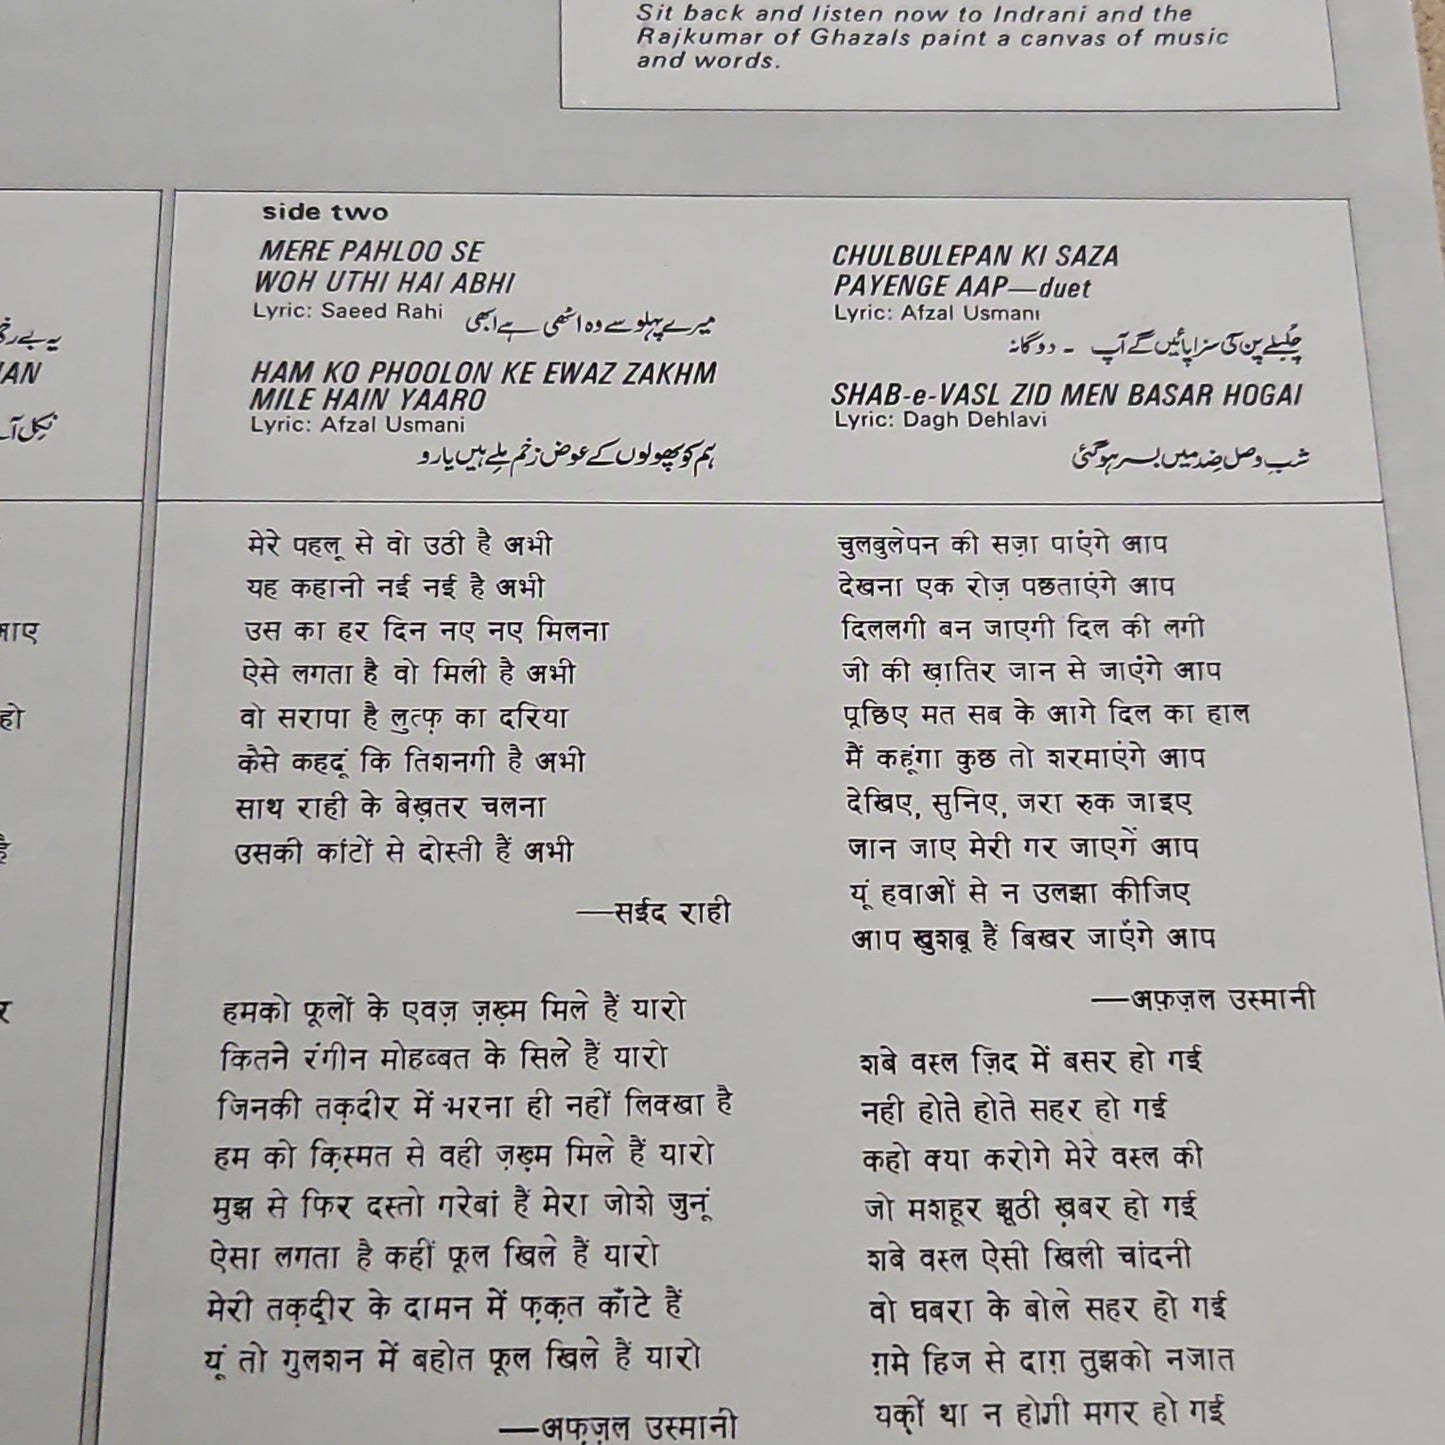 Sit back and listen now to Indrani and the
Rajkumar of Ghazals paint a canvas of music
and words.
side two
MERE PAHLOO SE
WOH UTHI HAI ABHI
Lyric: Saeed Rahi
میرے پہلو سے وہ اٹھی ہے ابھی
HAM KO PHOOLON KE EWAZ ZAKHM
MILE HAIN YAARO
Lyric: Afzal Usmani
ہم کو پھولوں کے عوض زخم ملے ہیں یارو
CHULBULEPAN KI SAZA
PAYENGE AAP—duet
Lyric: Afzal Usmani
چُلبلے پن کی سزا پائیں گے آپ - دوگانہ
SHAB-e-VASL ZID MEN BASAR HOGAI
Lyric: Dagh Dehlavi
شبِ وصل ضِد میں بسر ہو گئی
یہ بے رخی
IAN
نکِل آ
माए
हो
है
र
मेरे पहलू से वो उठी है अभी
यह कहानी नई नई है अभी
उस का हर दिन नए नए मिलना
ऐसे लगता है वो मिली है अभी
वो सरापा है लुत्फ़ का दरिया
कैसे कहदूं कि तिशनगी है अभी
साथ राही के बेख़तर चलना
उसकी कांटों से दोस्ती हैं अभी
—सईद राही
हमको फूलों के एवज़ ज़ख़्म मिले हैं यारो
कितने रंगीन मोहब्बत के सिले हैं यारो
जिनकी तक़दीर में भरना ही नहीं लिक्खा है
हम को क़िस्मत से वही ज़ख़्म मिले हैं यारो
मुझ से फिर दस्तो गरेबां हैं मेरा जोशे जुनूं
ऐसा लगता है कहीं फूल खिले हैं यारो
मेरी तक़दीर के दामन में फ़क़त काँटे हैं
यूं तो गुलशन में बहोत फूल खिले हैं यारो
—अफ़ज़ल उस्मानी
चुलबुलेपन की सज़ा पाएंगे आप
देखना एक रोज़ पछताएंगे आप
दिललगी बन जाएगी दिल की लगी
जी की ख़ातिर जान से जाएंगे आप
पूछिए मत सब के आगे दिल का हाल
मैं कहूंगा कुछ तो शरमाएंगे आप
देखिए, सुनिए, जरा रुक जाइए
जान जाए मेरी गर जाएगें आप
यूं हवाओं से न उलझा कीजिए
आप खुशबू हैं बिखर जाएँगे आप
—अफ़ज़ल उस्मानी
शबे वस्ल ज़िद में बसर हो गई
नही होते होते सहर हो गई
कहो क्या करोगे मेरे वस्ल की
जो मशहूर झूठी ख़बर हो गई
शबे वस्ल ऐसी खिली चांदनी
वो घबरा के बोले सहर हो गई
ग़मे हिज से दाग़ तुझको नजात
यक़ीं था न होगी मगर हो गई